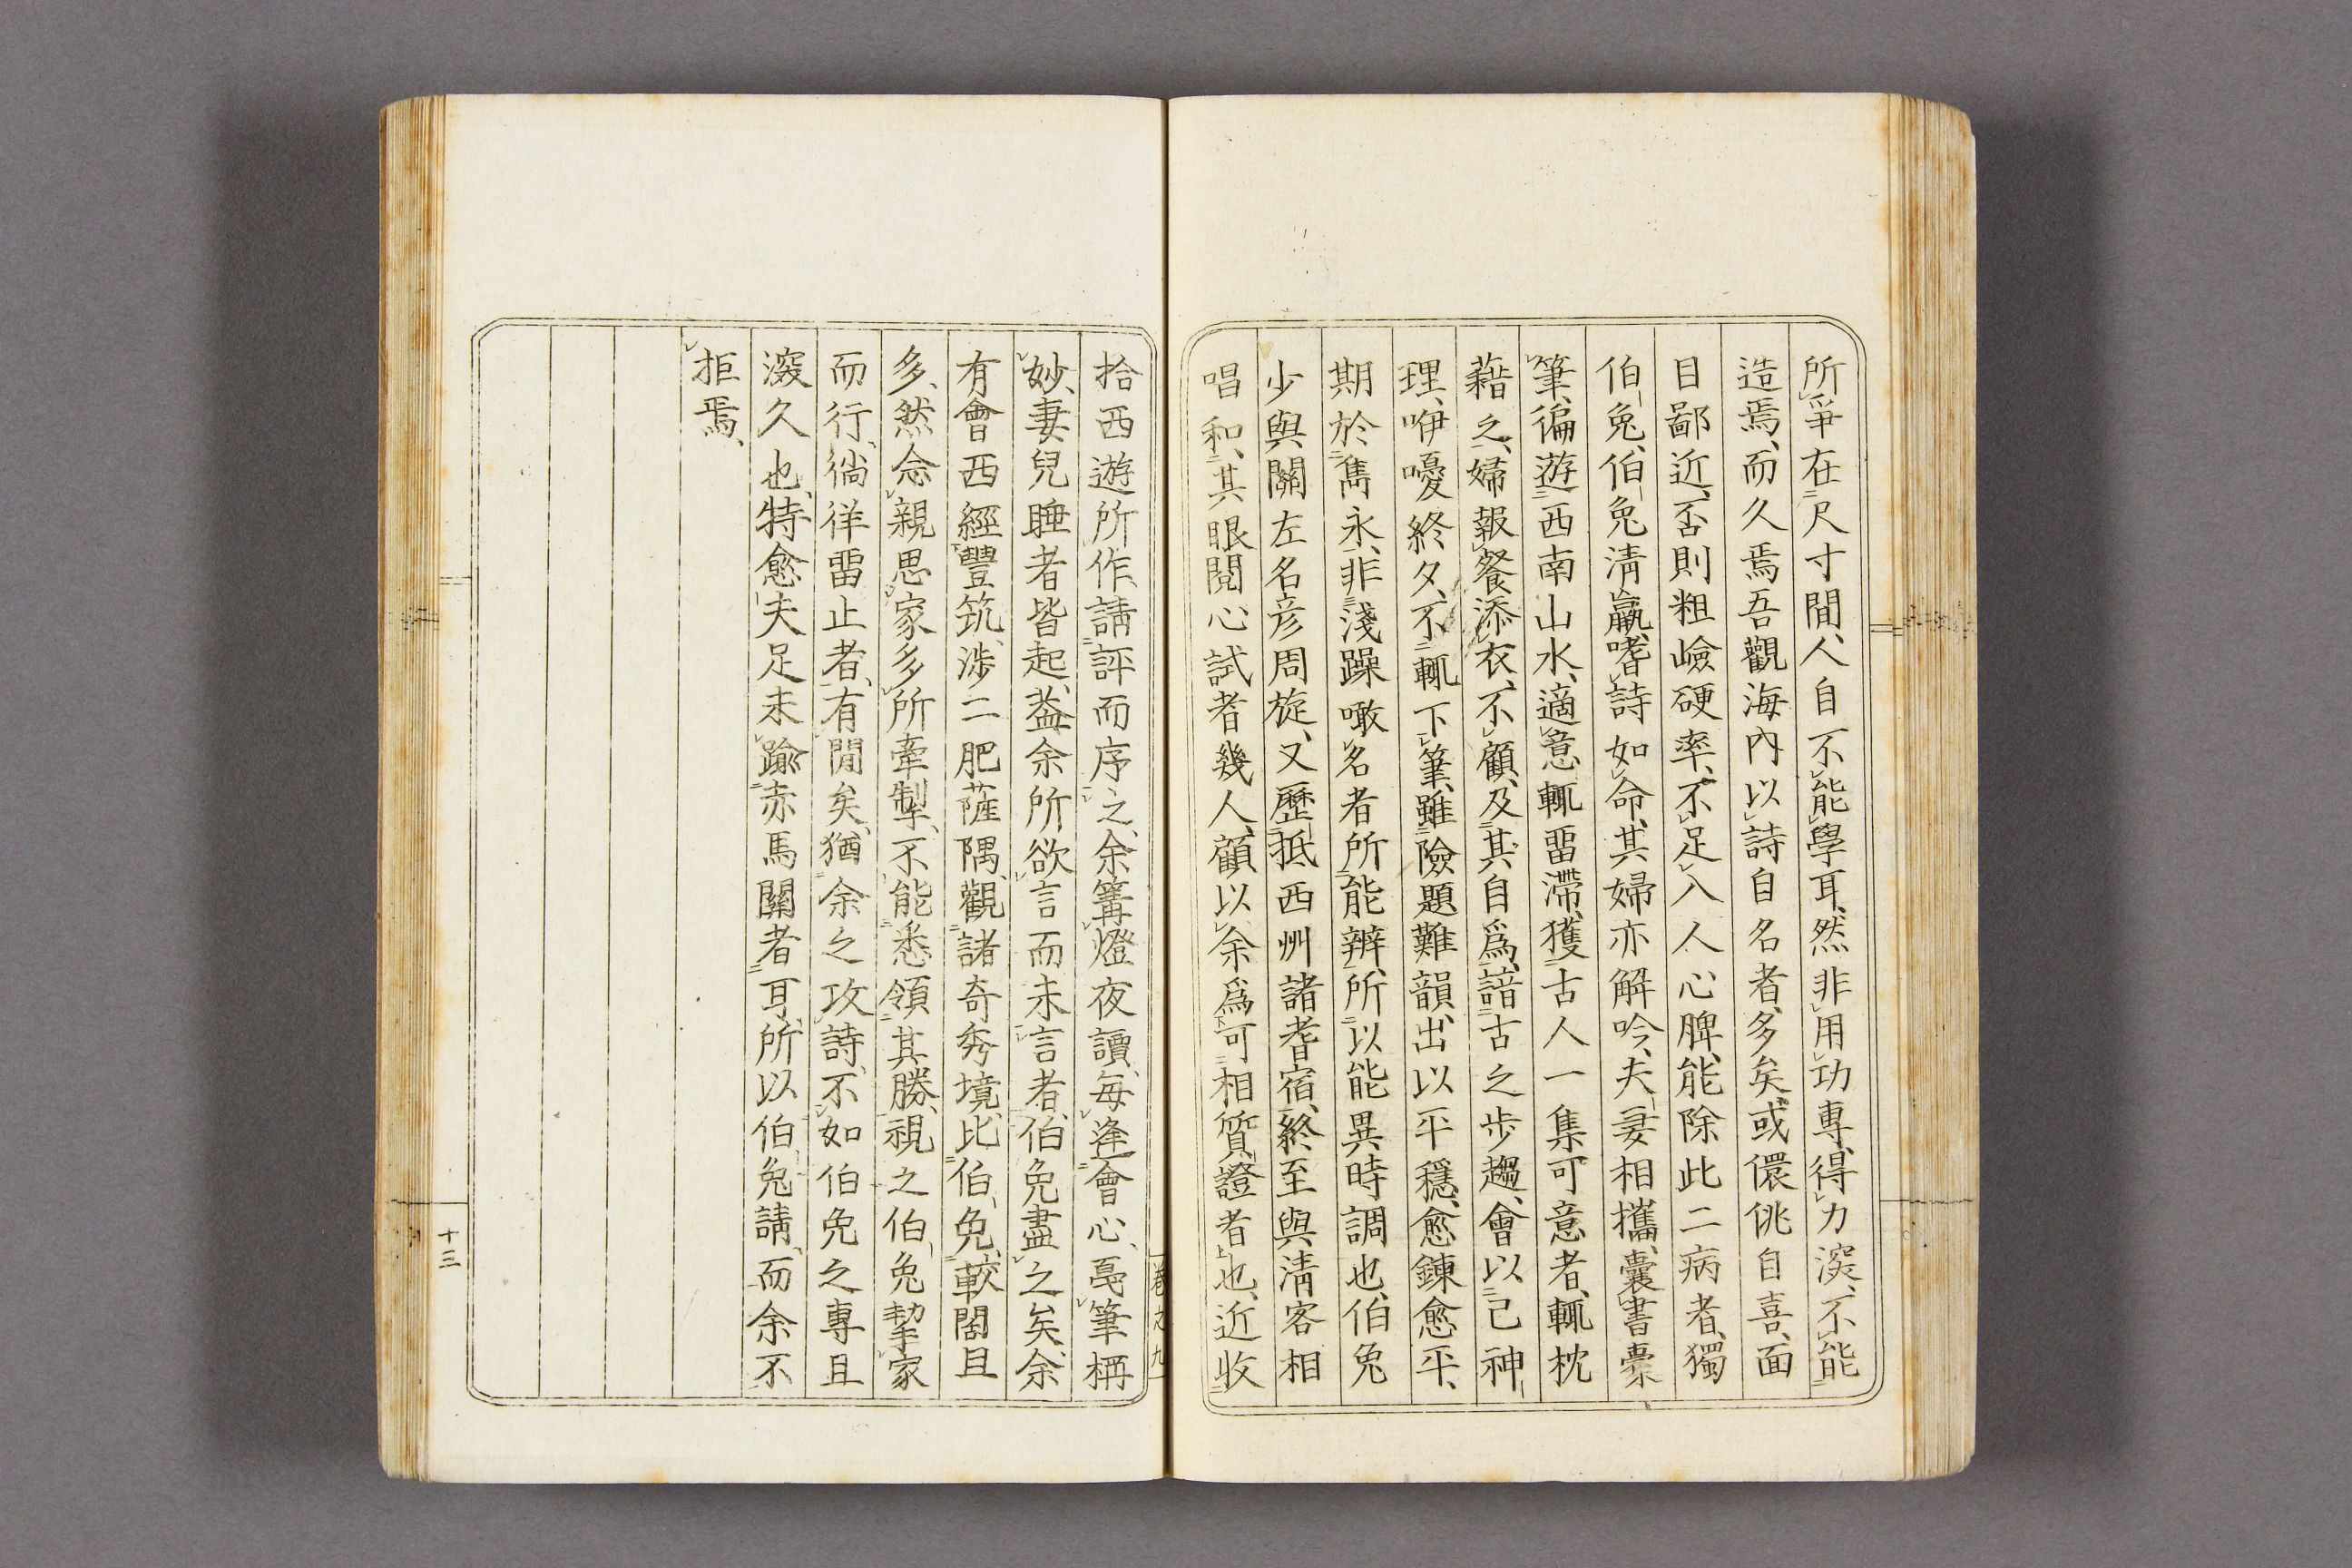 所爭在尺寸間、人自不能學耳、然非用功專、得力深、不能
造焉、而久焉吾觀海內以詩自名者、多矣、或儇佻自喜、面
目鄙近、否則粗嶮硬率、不足入人心脾、能除此二病者、獨
伯兔、伯兔淸羸、嗜詩如命、其婦亦解吟、夫妻相攜、囊書橐
筆、徧遊西南山水、適意輒畱滯、獲古人一集可意者、輒枕
藉之、婦報餐添衣、不顧、及其自爲、諳古之步趨、會以己神
理、咿嚘終夕、不輒下筆、雖險題難韻、出以平穩、愈鍊愈平、
期於雋永、非淺躁噉名者所能辨、所以能異時調也、伯兔
少與關左名彦周旋、又歷抵西州諸耆宿、終至與淸客相
唱和、其眼閱心試者幾人、顧以余爲可相質證者也、近收
拾西遊所作、請評而序之、余篝燈夜讀、每逢會心、亟筆稱
妙、妻兒睡者皆起、葢余所欲言而未言者、伯兔盡之矣、余
有會西經豐筑、涉二肥薩隅、觀諸奇秀境、比伯兔、較闊且
多、然念親思家、多所牽掣、不能悉領其勝、視之伯兔挈家
而行、徜徉畱止者、有閒矣、猶余之攻詩、不如伯兔之專且
深久也、特愈夫足未踰赤馬關者耳、所以伯兔請、而余不
拒焉、
卷之九
十三